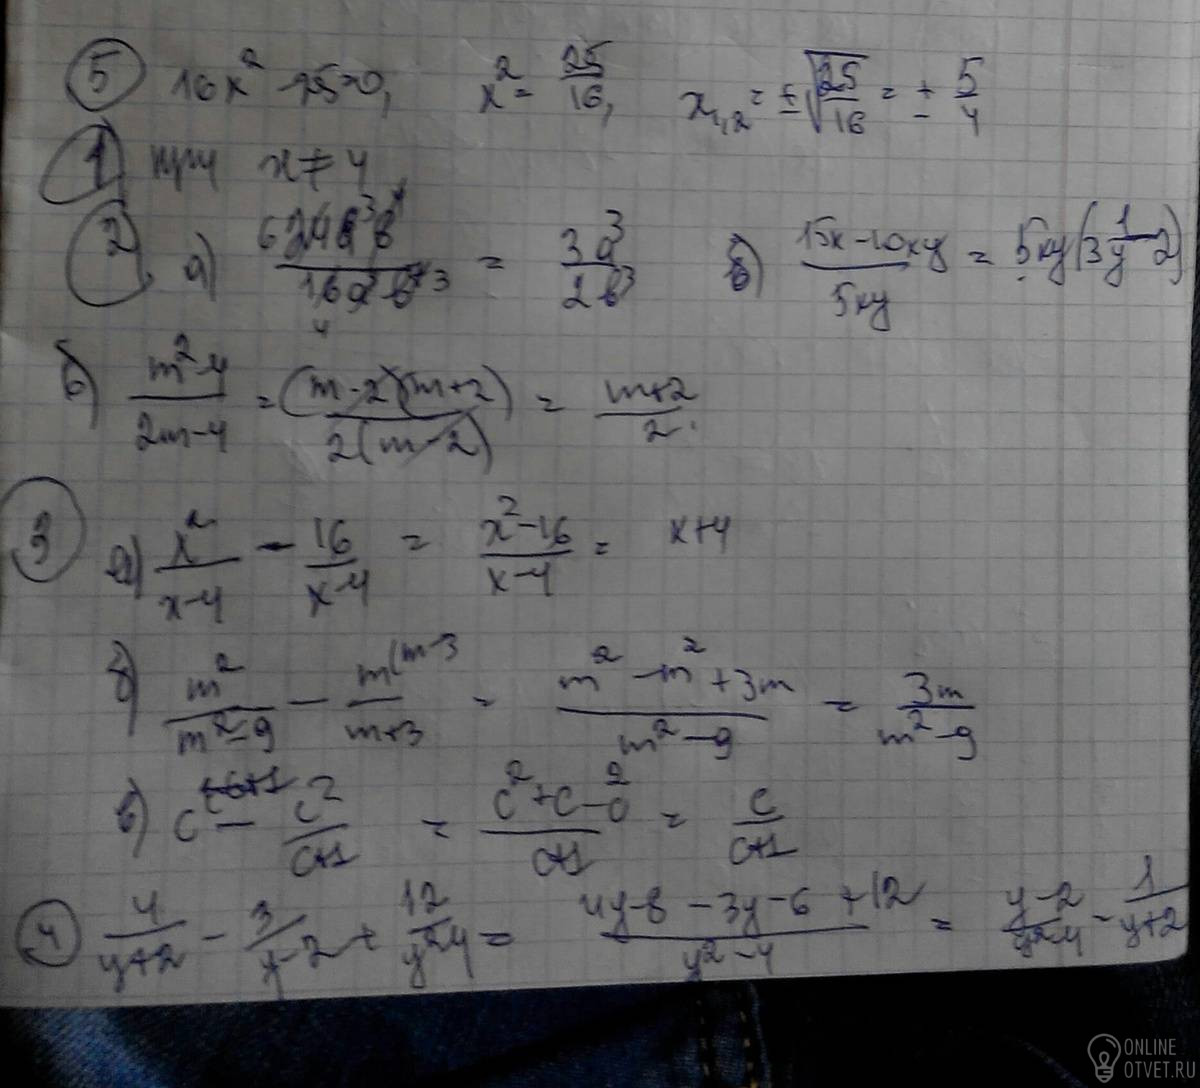 5 16x² - 25=0, x² = 25/16, x₁,₂ = ±√25/16 = ± 5/4
1 при x ≠ 4
2 а) 6 24a³b⁴ / 16a²b⁴³ 4 = 3a³/2b³ в) 15x-10xy / 5xy = 5xy(3 1/y - 2)
б) m²-4 / 2m-4 = (m-2)(m+2) / 2(m-2) = m+2 / 2.
3 а) x² / x-4 - 16 / x-4 = x²-16 / x-4 = x+4
б) m² / m²-9 - m(m-3 / m+3 = m² - m² + 3m / m²-9 = 3m / m²-9
в) c - c² / c+1 = c²+c-c² / c+1 = c / c+1
4 4 / y+2 - 3 / y-2 + 12 / y²-4 = 4y-8 - 3y-6 +12 / y²-4 = y-2 / y²-4 - 1 / y+2
ONLINE
OTVET.RU